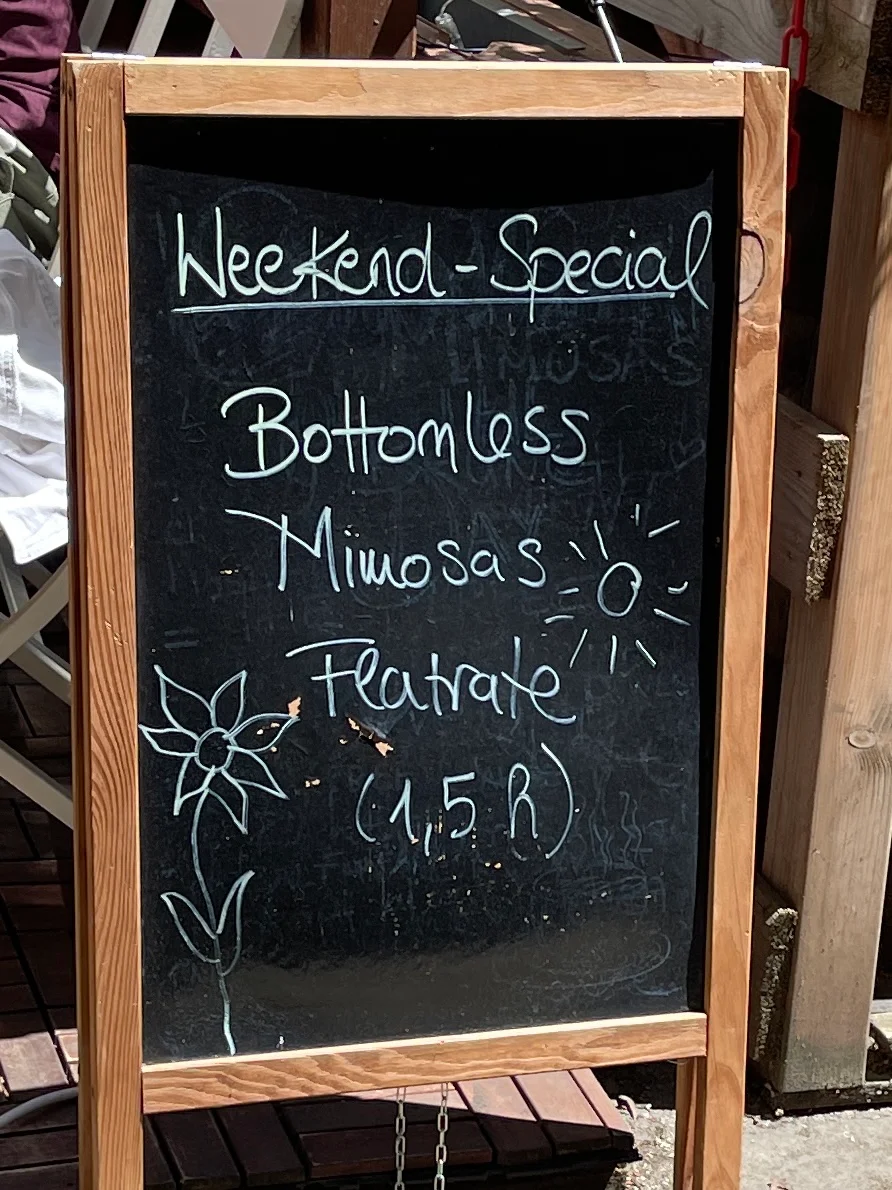 Weekend-Special
Bottomless
Mimosas
Flatrate
(1,5 h)